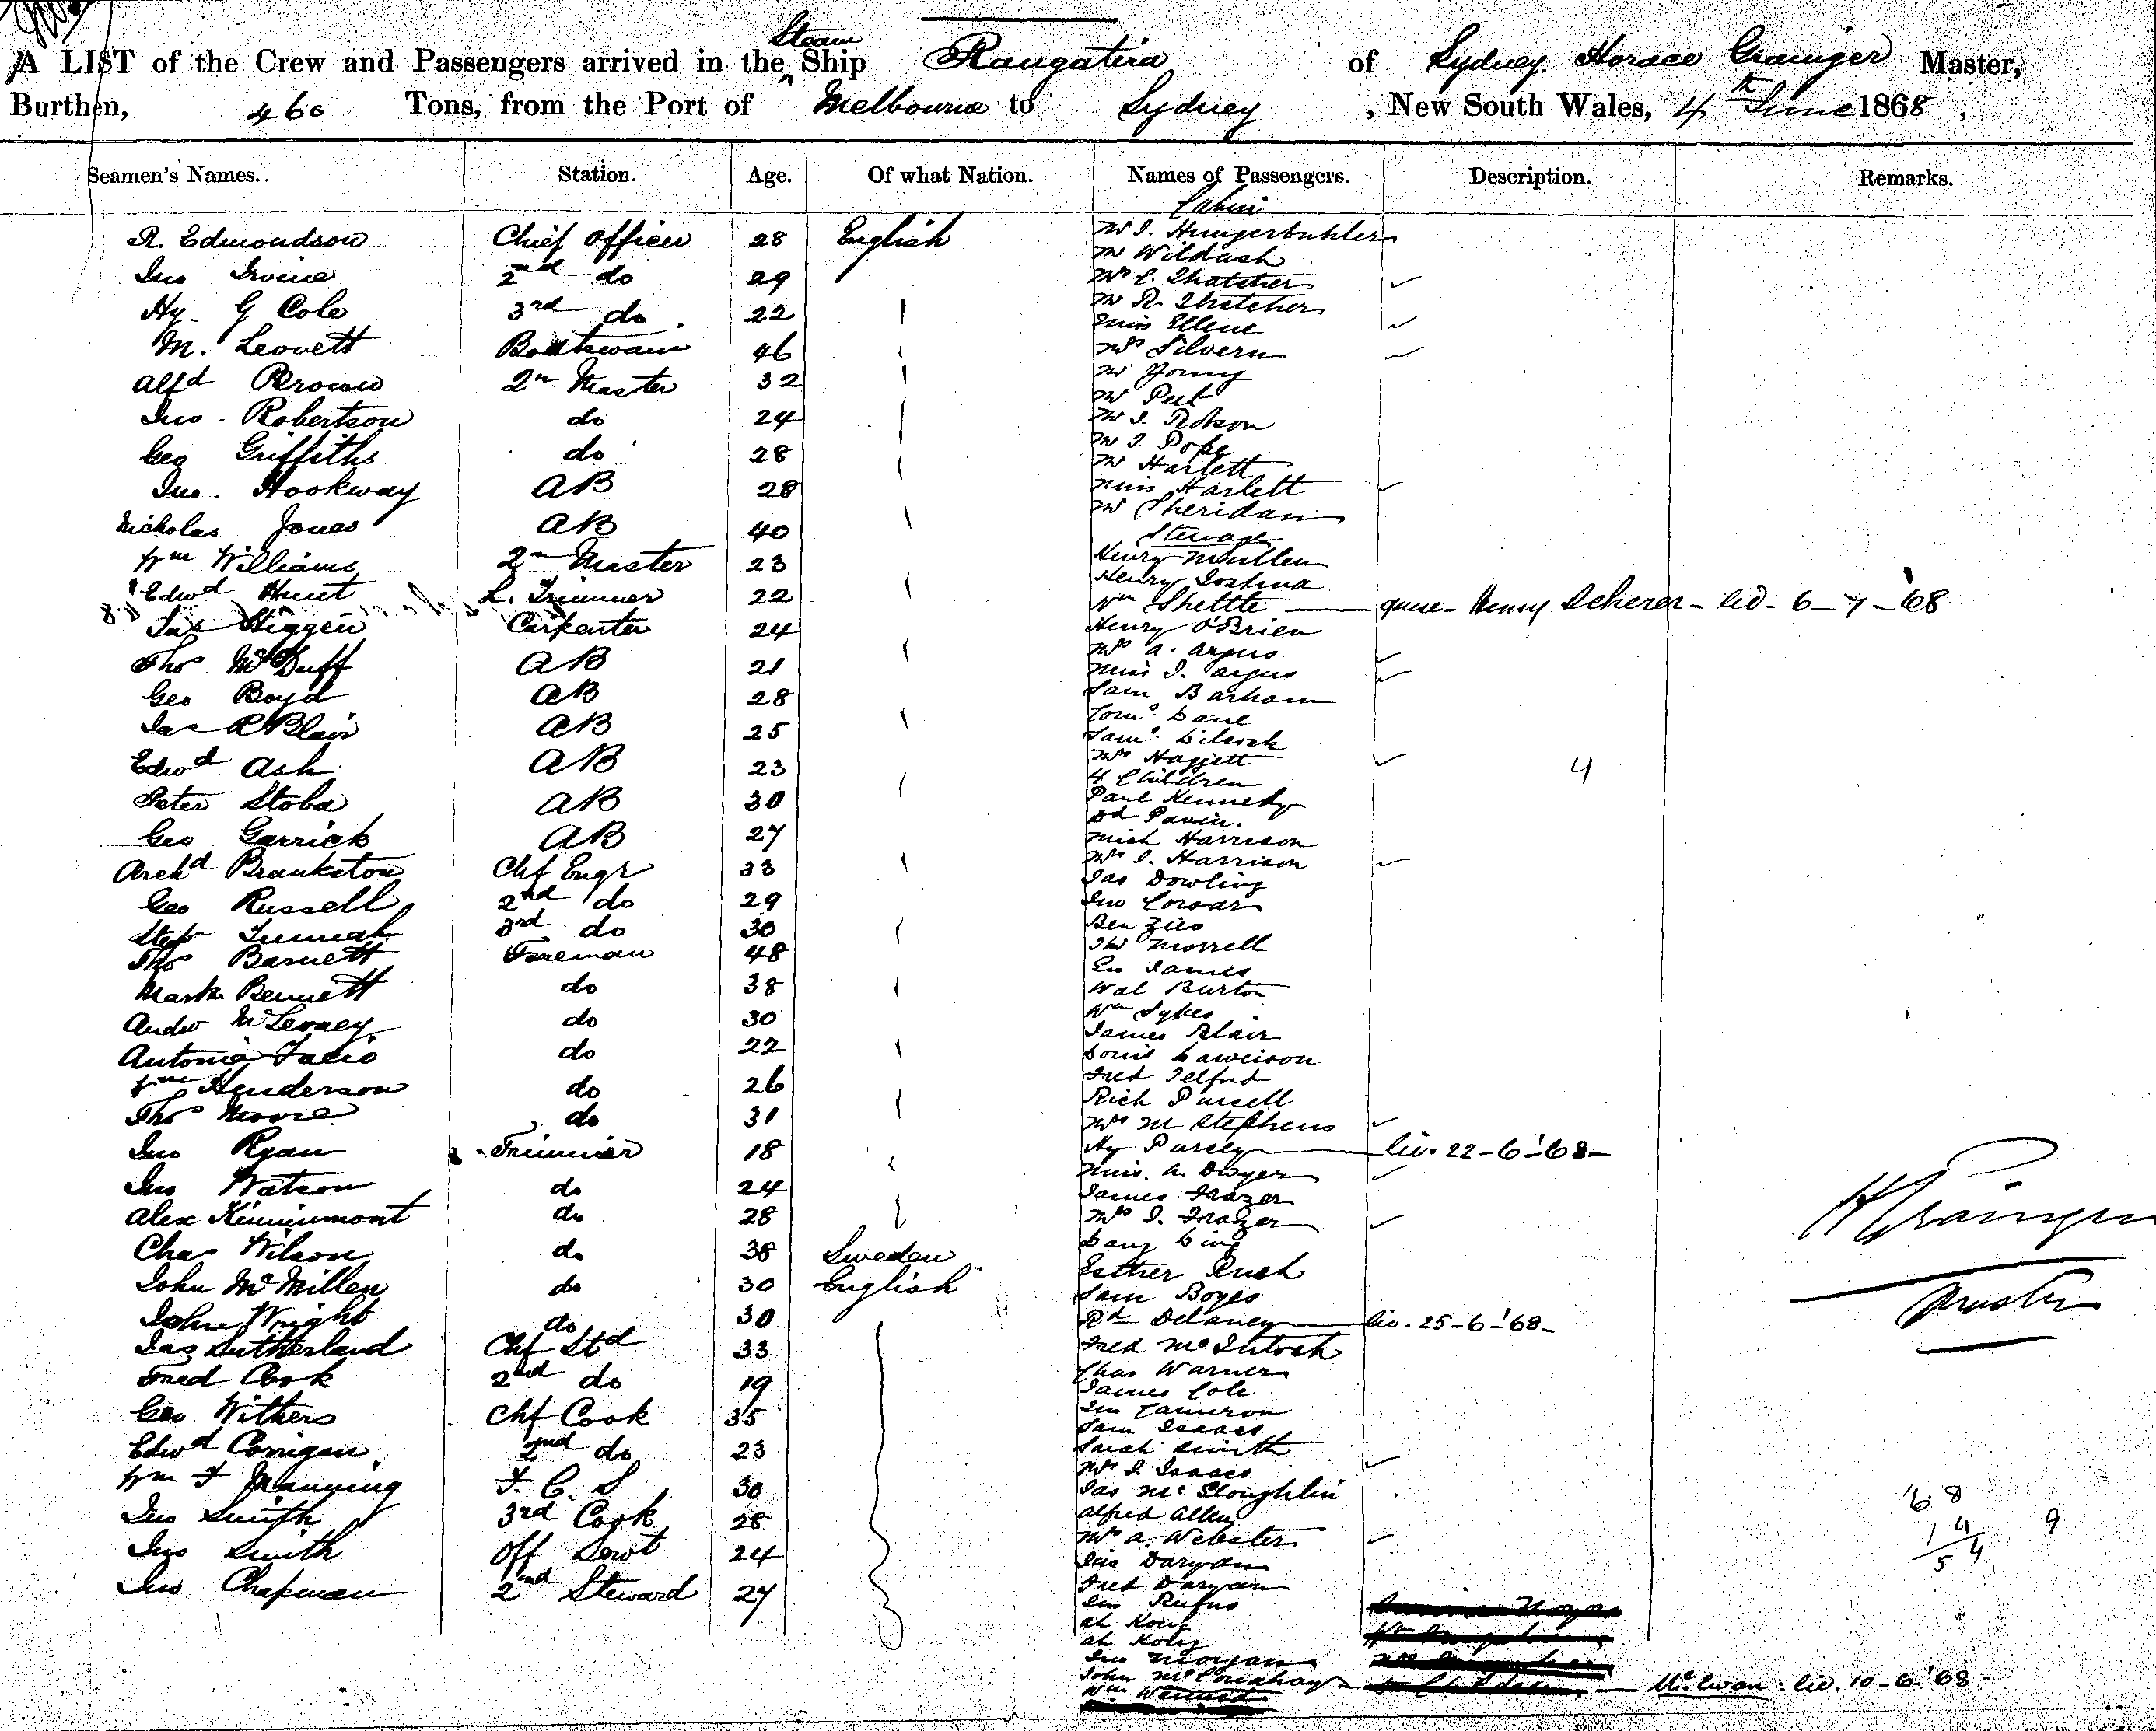 A LIST of the Crew and Passengers arrived in the Steam Ship Rangatira of Sydney Horace Grainger Master,
Burthen, 460 Tons, from the Port of Melbourne to Sydney, New South Wales, 4th June 1868,
Seamen's Names. Station. Age. Of what Nation. Names of Passengers. Description. Remarks.
Cabin
R. Edmondson Chief Officer 28 English
Jno Irvine 2nd do 29
Hy. G Cole 3rd do 22
M. Leovett Boatswain 46
Alfd Brown 2r Master 32
Jno. Robertson do 24
Geo Griffiths do 28
Jno. Hookway AB 28
Nicholas Jones AB 40
Wm Williams 2r Master 23
Edwd Hunt L. Trimmer 22
Carpenter 24
Thos McDuff AB 21
Geo Boyd AB 28
Jas R Blair AB 25
Edwd Ash AB 23
Peter Stoba AB 30
Geo Garrick AB 27
Archd Brankston Chf Engr 33
Geo Russell 2nd do 29
3rd do 30
Thos Barnett Fireman 48
Mark Bennett do 38
Andw do 30
Antonio do 22
Wm Henderson do 26
Thos Moore do 31
Jno Ryan Trimmer 18
Jno Watson do 24
Alex Kinninmont do 28
Chas Wilson do 38 Sweden
John McMillen do 30 English
John Wright do 30
Jas Sutherland Chf Std 33
Fred Cook 2nd do 19
Geo Withers Chf Cook 35
Edwd Corrigan 2nd do 23
Wm F Manning F. C. S 30
Jno Smith 3rd Cook 28
Jno Smith Off Servt 24
Jno Chapman 2nd Steward 27
Mr J. Hungerbuhler
Mr Wildash
Mrs C. Thatcher
Mr R. Thatcher
Miss Ellene
Mrs Silvern
Mr Young
Mr Peet
Mr J. Robson
Mr J. Pope
Mr Harlett
Miss Harlett
Mr Sheridan
Steerage
Henry Mullen
Henry Joshua
Wm Shettle quere Henry Scherer - lid - 6-7-'68
Henry O'Brien
Mrs A. Argus
Miss J. Argus
Sam Barham
Corns. Lane
Saml.
Mrs
4 Children 4
Paul Kennedy
Mich Harrison
Mrs J. Harrison
Jas Dowling
Jno
Ben
Jno Morrell
James
Wal Burton
Wm Sykes
James Blair
Louis
Fred Telford
Rich Pursell
Mrs M Stephens
Hy Pursey liv. 22-6-'68
Miss A. Dwyer
James Frazer
Mrs J. Frazer
Esther Rush
Sam Boyes
Rd Delaney liv. 25-6-'68
Fred McIntosh
Chas Warner
James Cole
Cameron
Sam Isaacs
Sarah Smith
Mrs J. Isaacs
Jas McLoughlin
Alfred Allen
Mrs A. Webster
Fred
Rufus
Ah Kong
Ah
Jno Morgan
John McConahay McEwan. lid. 10-6-'68
H Grainger
Master
68
14
54
9